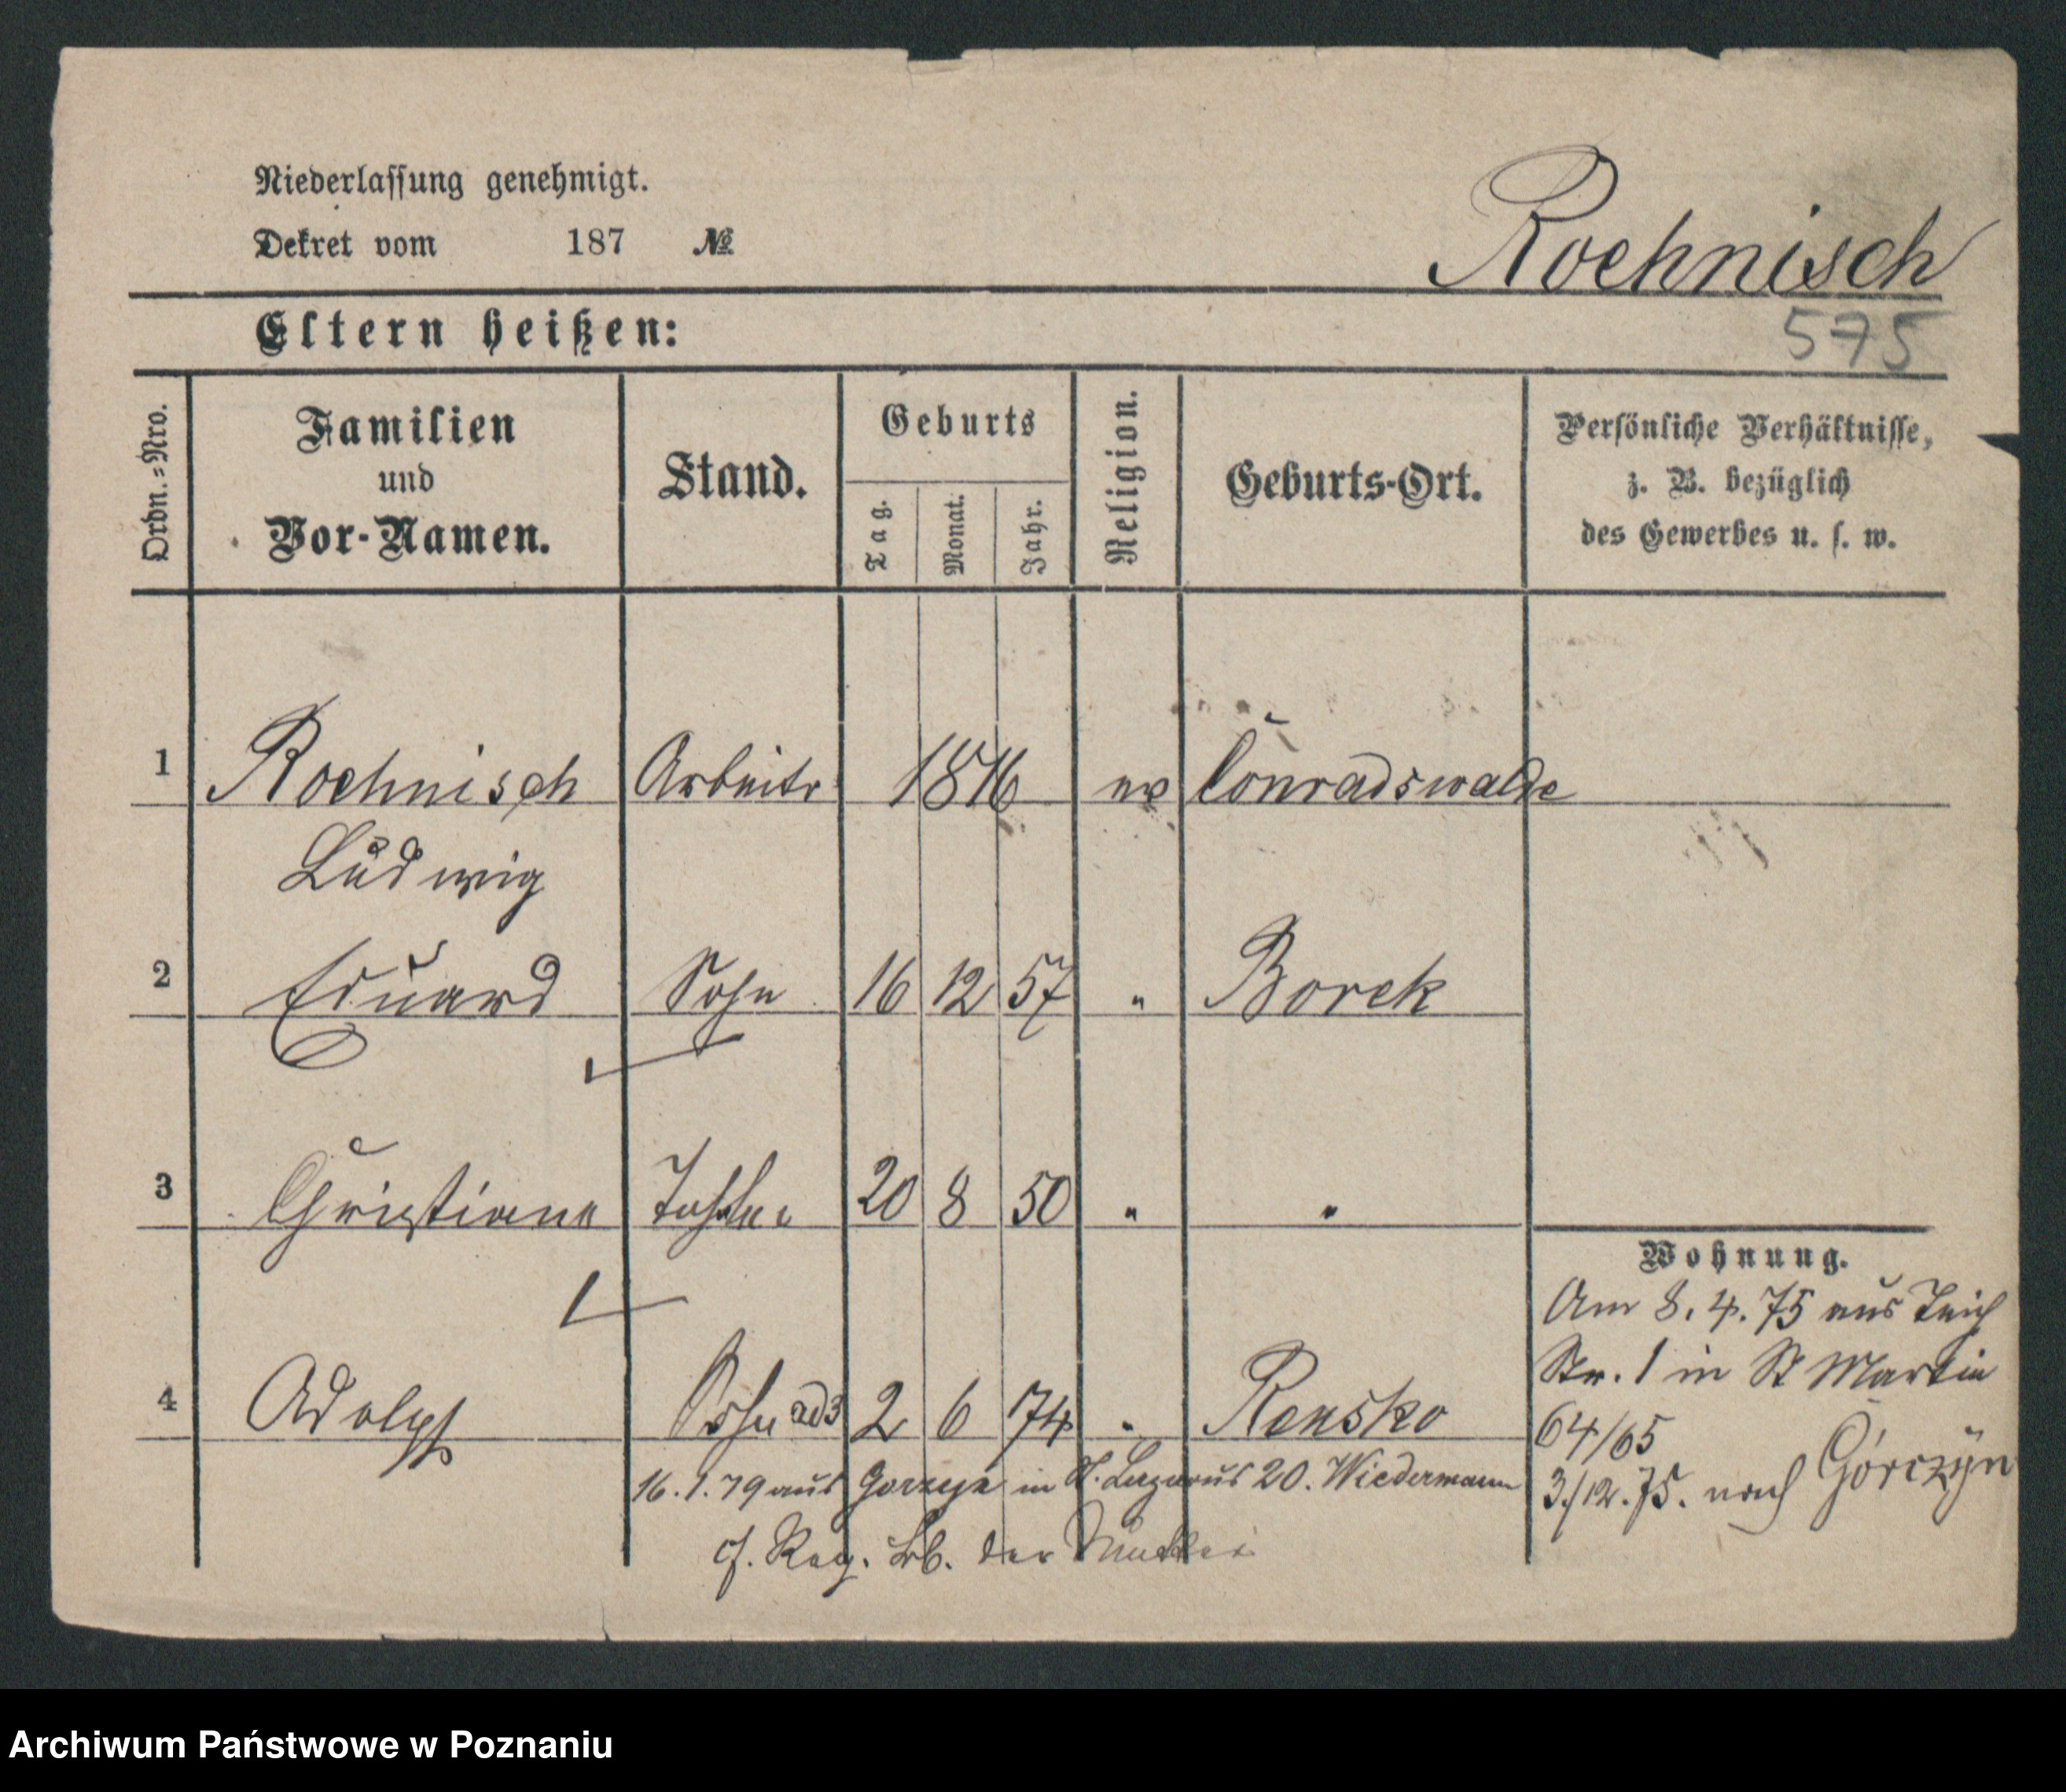 Niederlassung genehmigt.
Dekret vom 187 №
Roehnisch
Eltern heißen:
575
Ordn.=Nro.
Familien
und
Vor-Namen.
Stand.
Geburts
Tag.
Monat.
Jahr.
Religion.
Geburts-Ort.
Persönliche Verhältnisse,
z. B. bezüglich
des Gewerbes u. s. w.
1 Roehnisch Arbeiter 1816 ev Conradswalde
Ludwig
2 Eduard Sohn 16 12 57 " Borek
3 Christiane Tochter 20 8 50 " "
Wohnung.
Am 8. 4. 75 aus Teich
Str. 1 in St Martin
64/65
3/12. 75. nach Górczyn
4 Adolph Sohn ad 3 2 6 74 " Rensko
16. 1. 79 aus Gorczyn in St. Lazarus 20. Wiedermann
cf. Reg. Bb. der Mutter
Archiwum Państwowe w Poznaniu